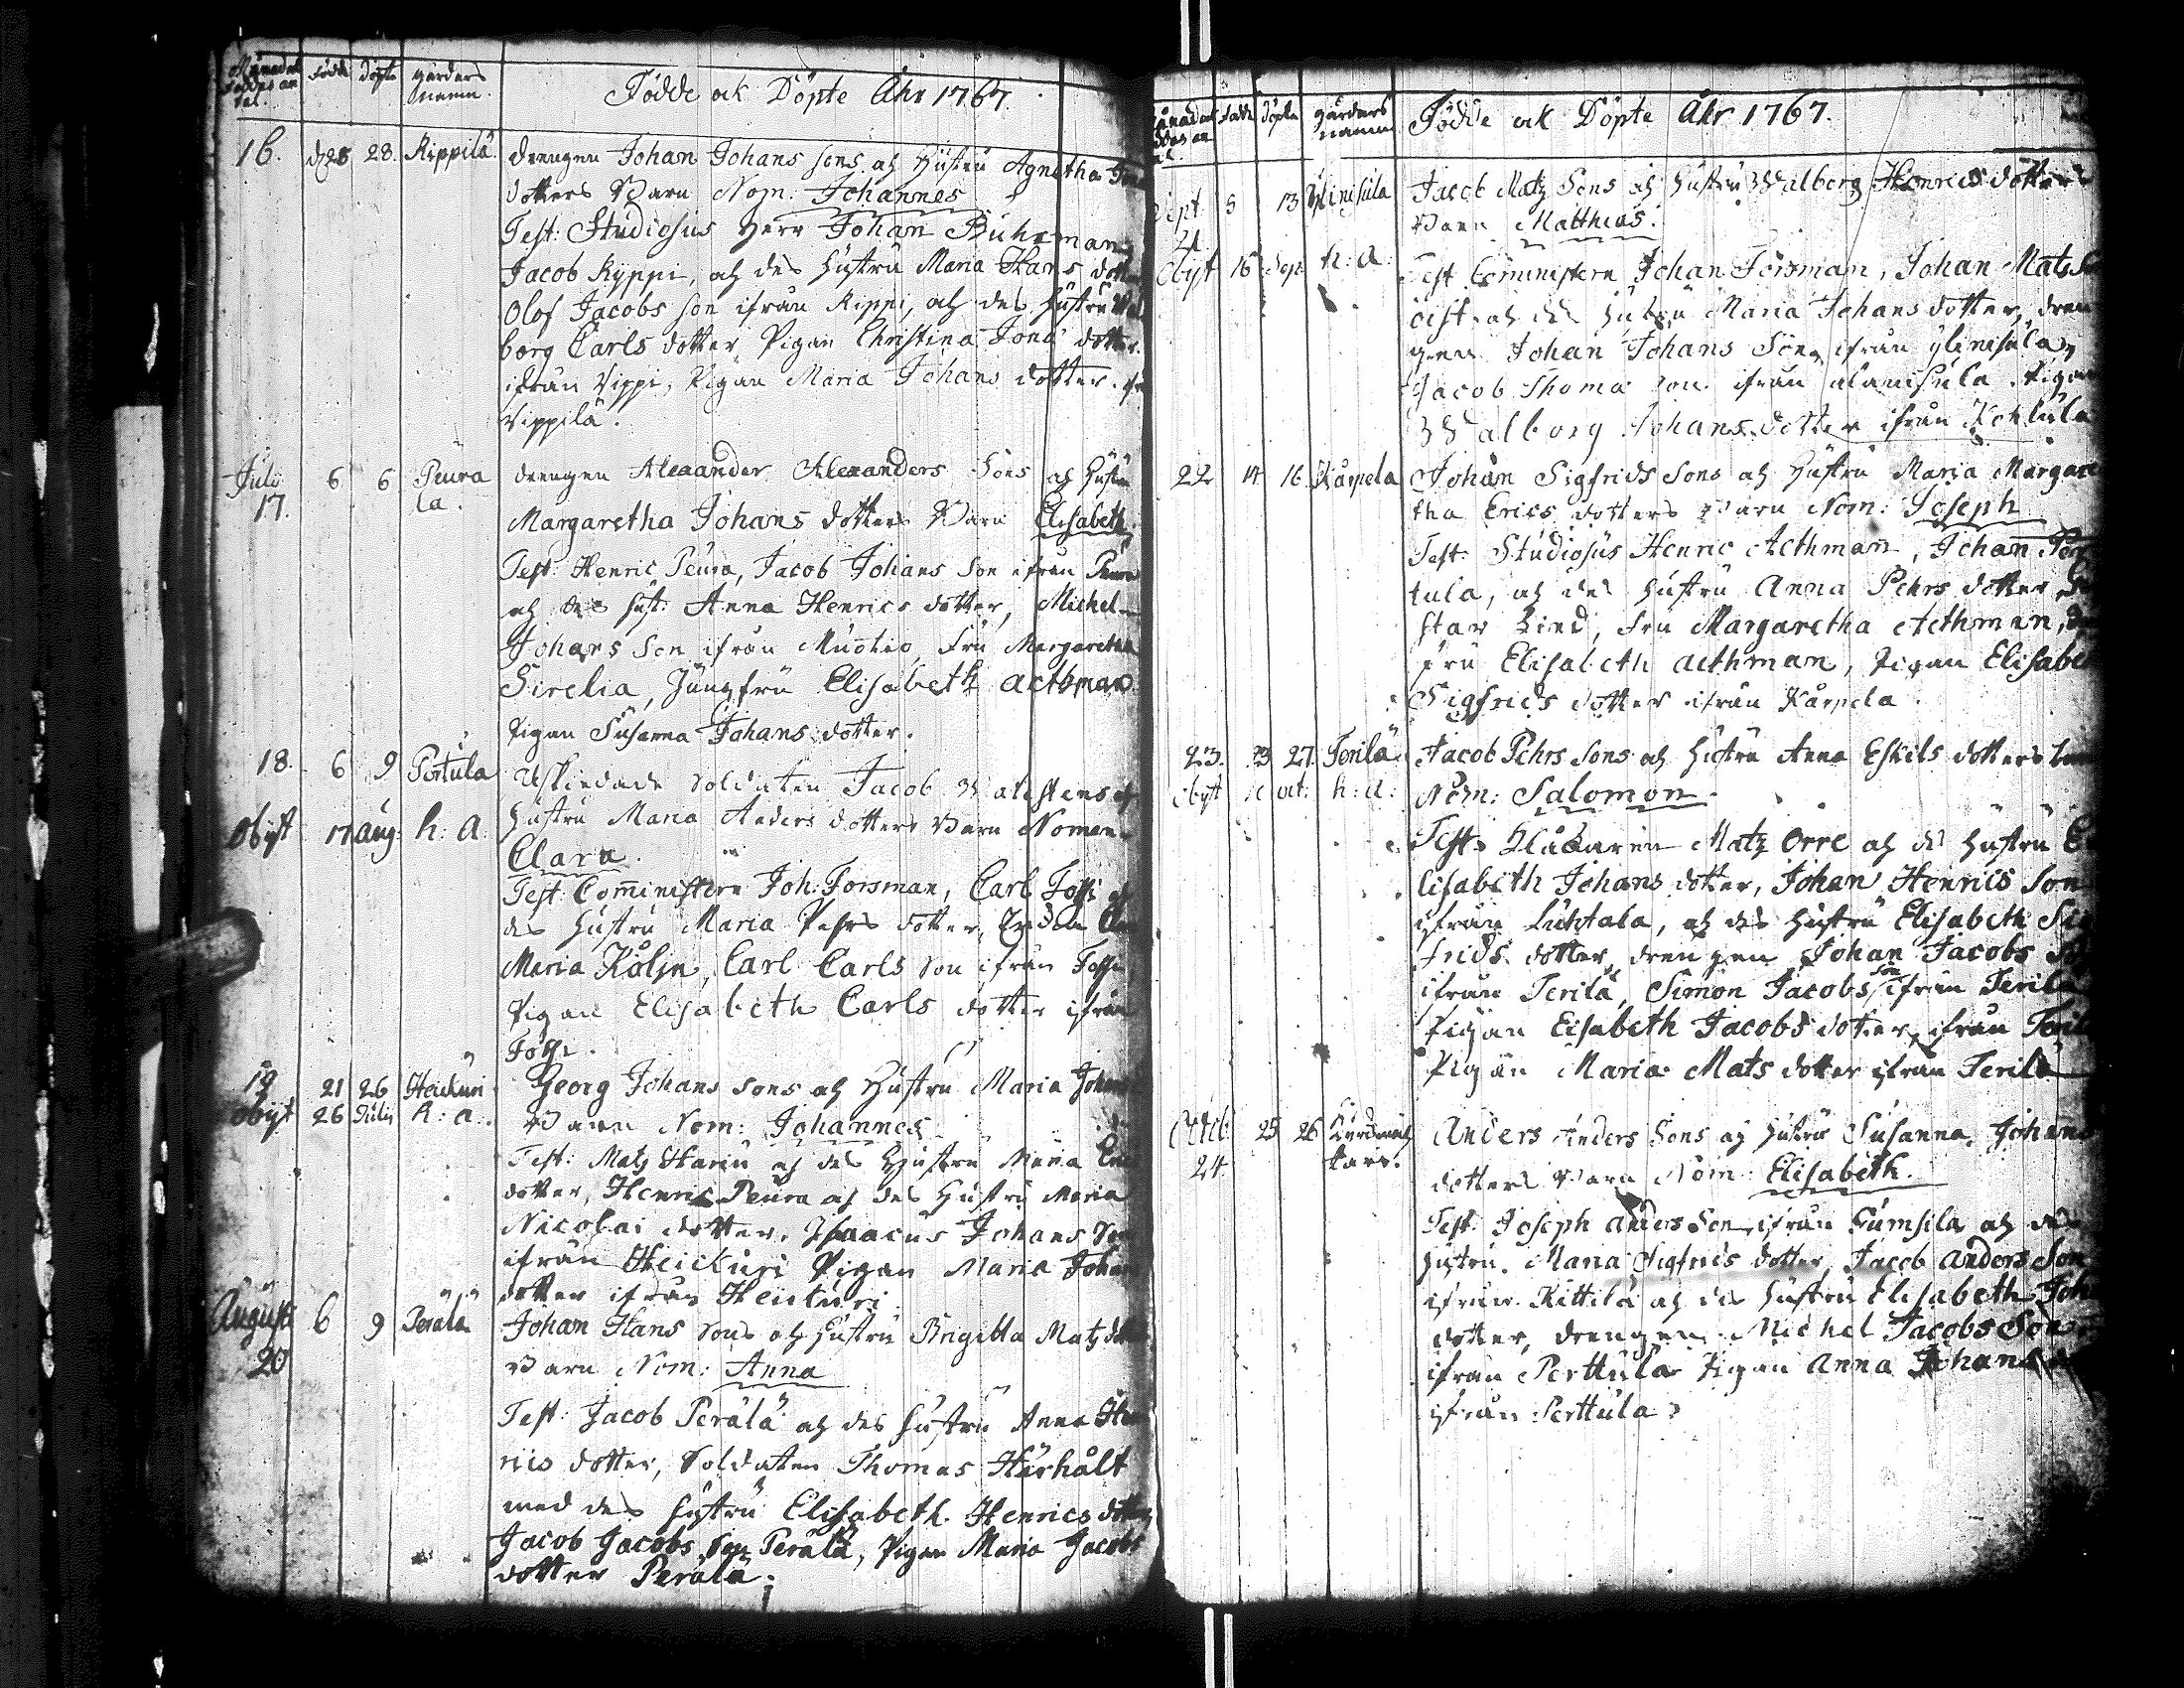 Månadel föddes an tal. Födde Döpte gårders namn. Födde ock Döpte Åhr 1767.
16. d 28 28. Rippilä. drengen Johan Johans sons och Hustru Agnetha
dotters Barn Nom: Johannes
Test: Studiosus Herr Johan Buhrman,
Jacob Ryppi, och des Hustru Maria Hans dotter
Olof Jacobs son ifrån Rippi, och des Hustru Wal
borg Carls dotter, Pigan Christina Jons dotter.
ifrån Vippi, Pigan Maria Johans dotter.
Vippilä.
Julii 17. 6 6 Peura la. drengen Alexander Alexanders Sons och Hustru
Margaretha Johans dotters Barn Elisabeth.
Test: Henric Peura, Jacob Johans Son ifrån Peura
och des hust: Anna Henrics dotter, Michel
Johans Son ifrån Muotio, Fru Margaretha
Sirelia, Jungfru Elisabeth Aethman
Pigan Susanna Johans dotter.
18. 6 9 Pertula Afskiedade Soldaten Jacob
obijt 17 aug: h: a. Hustru Maria Anders dotters Barn Nomen
Clara.
Test: Comministern Joh: Forsman, Carl Fossi
des Hustru Maria Pehrs dotter,
Maria Köljn, Carl Carls son ifrån Fossi
Pigan Elisabeth Carls dotter ifrån
Fossi.
19 21 26 Heickuri Georg Johans sons och Hustru Maria Johans
obijt 26 Julii h: a: Barn Nom: Johannes
Test: Matz Hariu och des Hustru Maria
dotter, Henric Peura och des Hustru Maria
Nicolai dotter, Isaacus Johans Son
ifrån Heickuri Pigan Maria Johans
dotter ifrån Heickuri.
Augusti 20 6 9 Perälä Johan Hans Sons och Hustru Brigitta Matz dotter
Barn Nom: Anna
Test: Jacob Perälä och des hustru Anna Hen
rics dotter, Soldaten Thomas Hårhålt
med des hustru Elisabeth Henrics dotter
Jacob Jacobs son Perälä, Pigan Maria Jacobs
dotter Perälä.
Födde Döpte gårders namn Födde ock Döpte Åhr 1767.
Sept 21 5 13 Ylinisula Jacob Matz Sons och Hustru Walborg Henrics dotters
Barn Matthias.
obijt 16 Sep h: a: Test Comministern Johan Forsman, Johan Mats
och des Hustru Maria Johans dotter, dren
gen Johan Johans Son, ifrån ylinisula,
Jacob Thomæ son ifrån alanisula, Pigan
Walborg Johans dotter ifrån
22 14 16. Kårpela Johan Sigfrids Sons och Hustru Maria Margare
tha Erics dotters Barn Nom: Joseph
Test: Studiosus Henric Aethman, Johan Per
tula, och des Hustru Anna Pehrs dotter,
Lind, Fru Margaretha Aethman,
fru Elisabeth Aethman, Pigan Elisabet
Sigfrids dotter ifrån Kårpela.
23. 23 27. Terilä Jacob Pehrs Sons och Hustru Anna Eskils dotters
obijt oct: h: a: Nom: Salomon.
Test: Klåckaren Matz Orre och des Hustru E
lisabeth Johans dotter, Johan Henrics son
ifrån Luhtala, och des Hustru Elisabeth Sig
frids dotter, drengen Johan Jacobs
ifrån Terilä, Simon Jacobs son ifrån Terilä
Pigan Elsabeth Jacobs dotter ifrån Teril
Pigan Maria Mats dotter ifrån Terilä
Octob 24. 25 26 Anders Anders Sons och Hustru Susanna Johans
dotters Barn Nom: Elisabeth.
Test: Joseph Anders Son, ifrån Humsila och des
Hustru Maria Sigfrids dotter, Jacob Anders Son
ifrån Kittilä och des Hustru Elisabeth Joh
dotter, drengen Michel Jacobs Son
ifrån Perttula Pigan Anna Johans
ifrån Perttula.